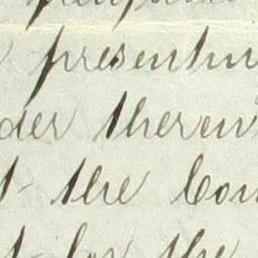 presentin
der therein
t the Com
t for the